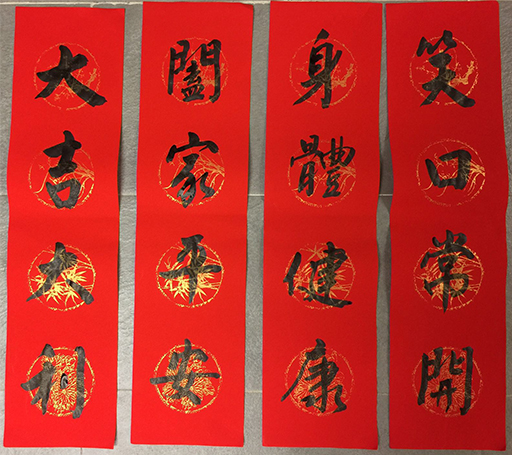 笑口常開
身體健康
闔家平安
大吉大利